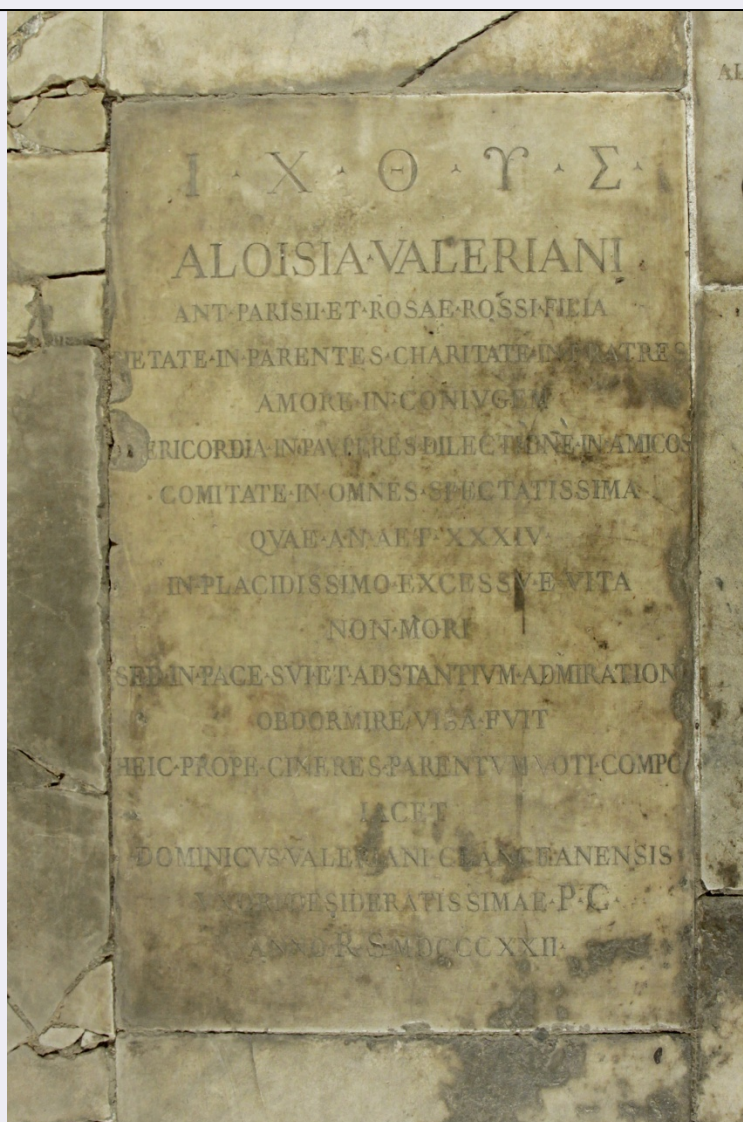 Ι · Χ · Θ · Υ · Σ ·
ALOISIA·VALERIANI
ANT·PARISII·ET·ROSAE·ROSSI·FILIA
IETATE·IN·PARENTES·CHARITATE·IN·FRATRES
AMORE·IN·CONIVGEM
ERICORDIA·IN·PAVPERES·DILECTIONE·IN·AMICOS
COMITATE·IN·OMNES·SPECTATISSIMA
QVAE·AN·AET·XXXIV·
IN·PLACIDISSIMO·EXCESSV·E·VITA
NON·MORI
SED·IN·PACE·SVI·ET·ADSTANTIVM·ADMIRATION
OBDORMIRE·VISA·FVIT
HEIC·PROPE·CINERES·PARENTVM·VOTI·COMPO
IACET
DOMINICVS·VALERIANI
DESIDERATISSIMAE·P·C·
R·S·MDCCCXXII·
AL